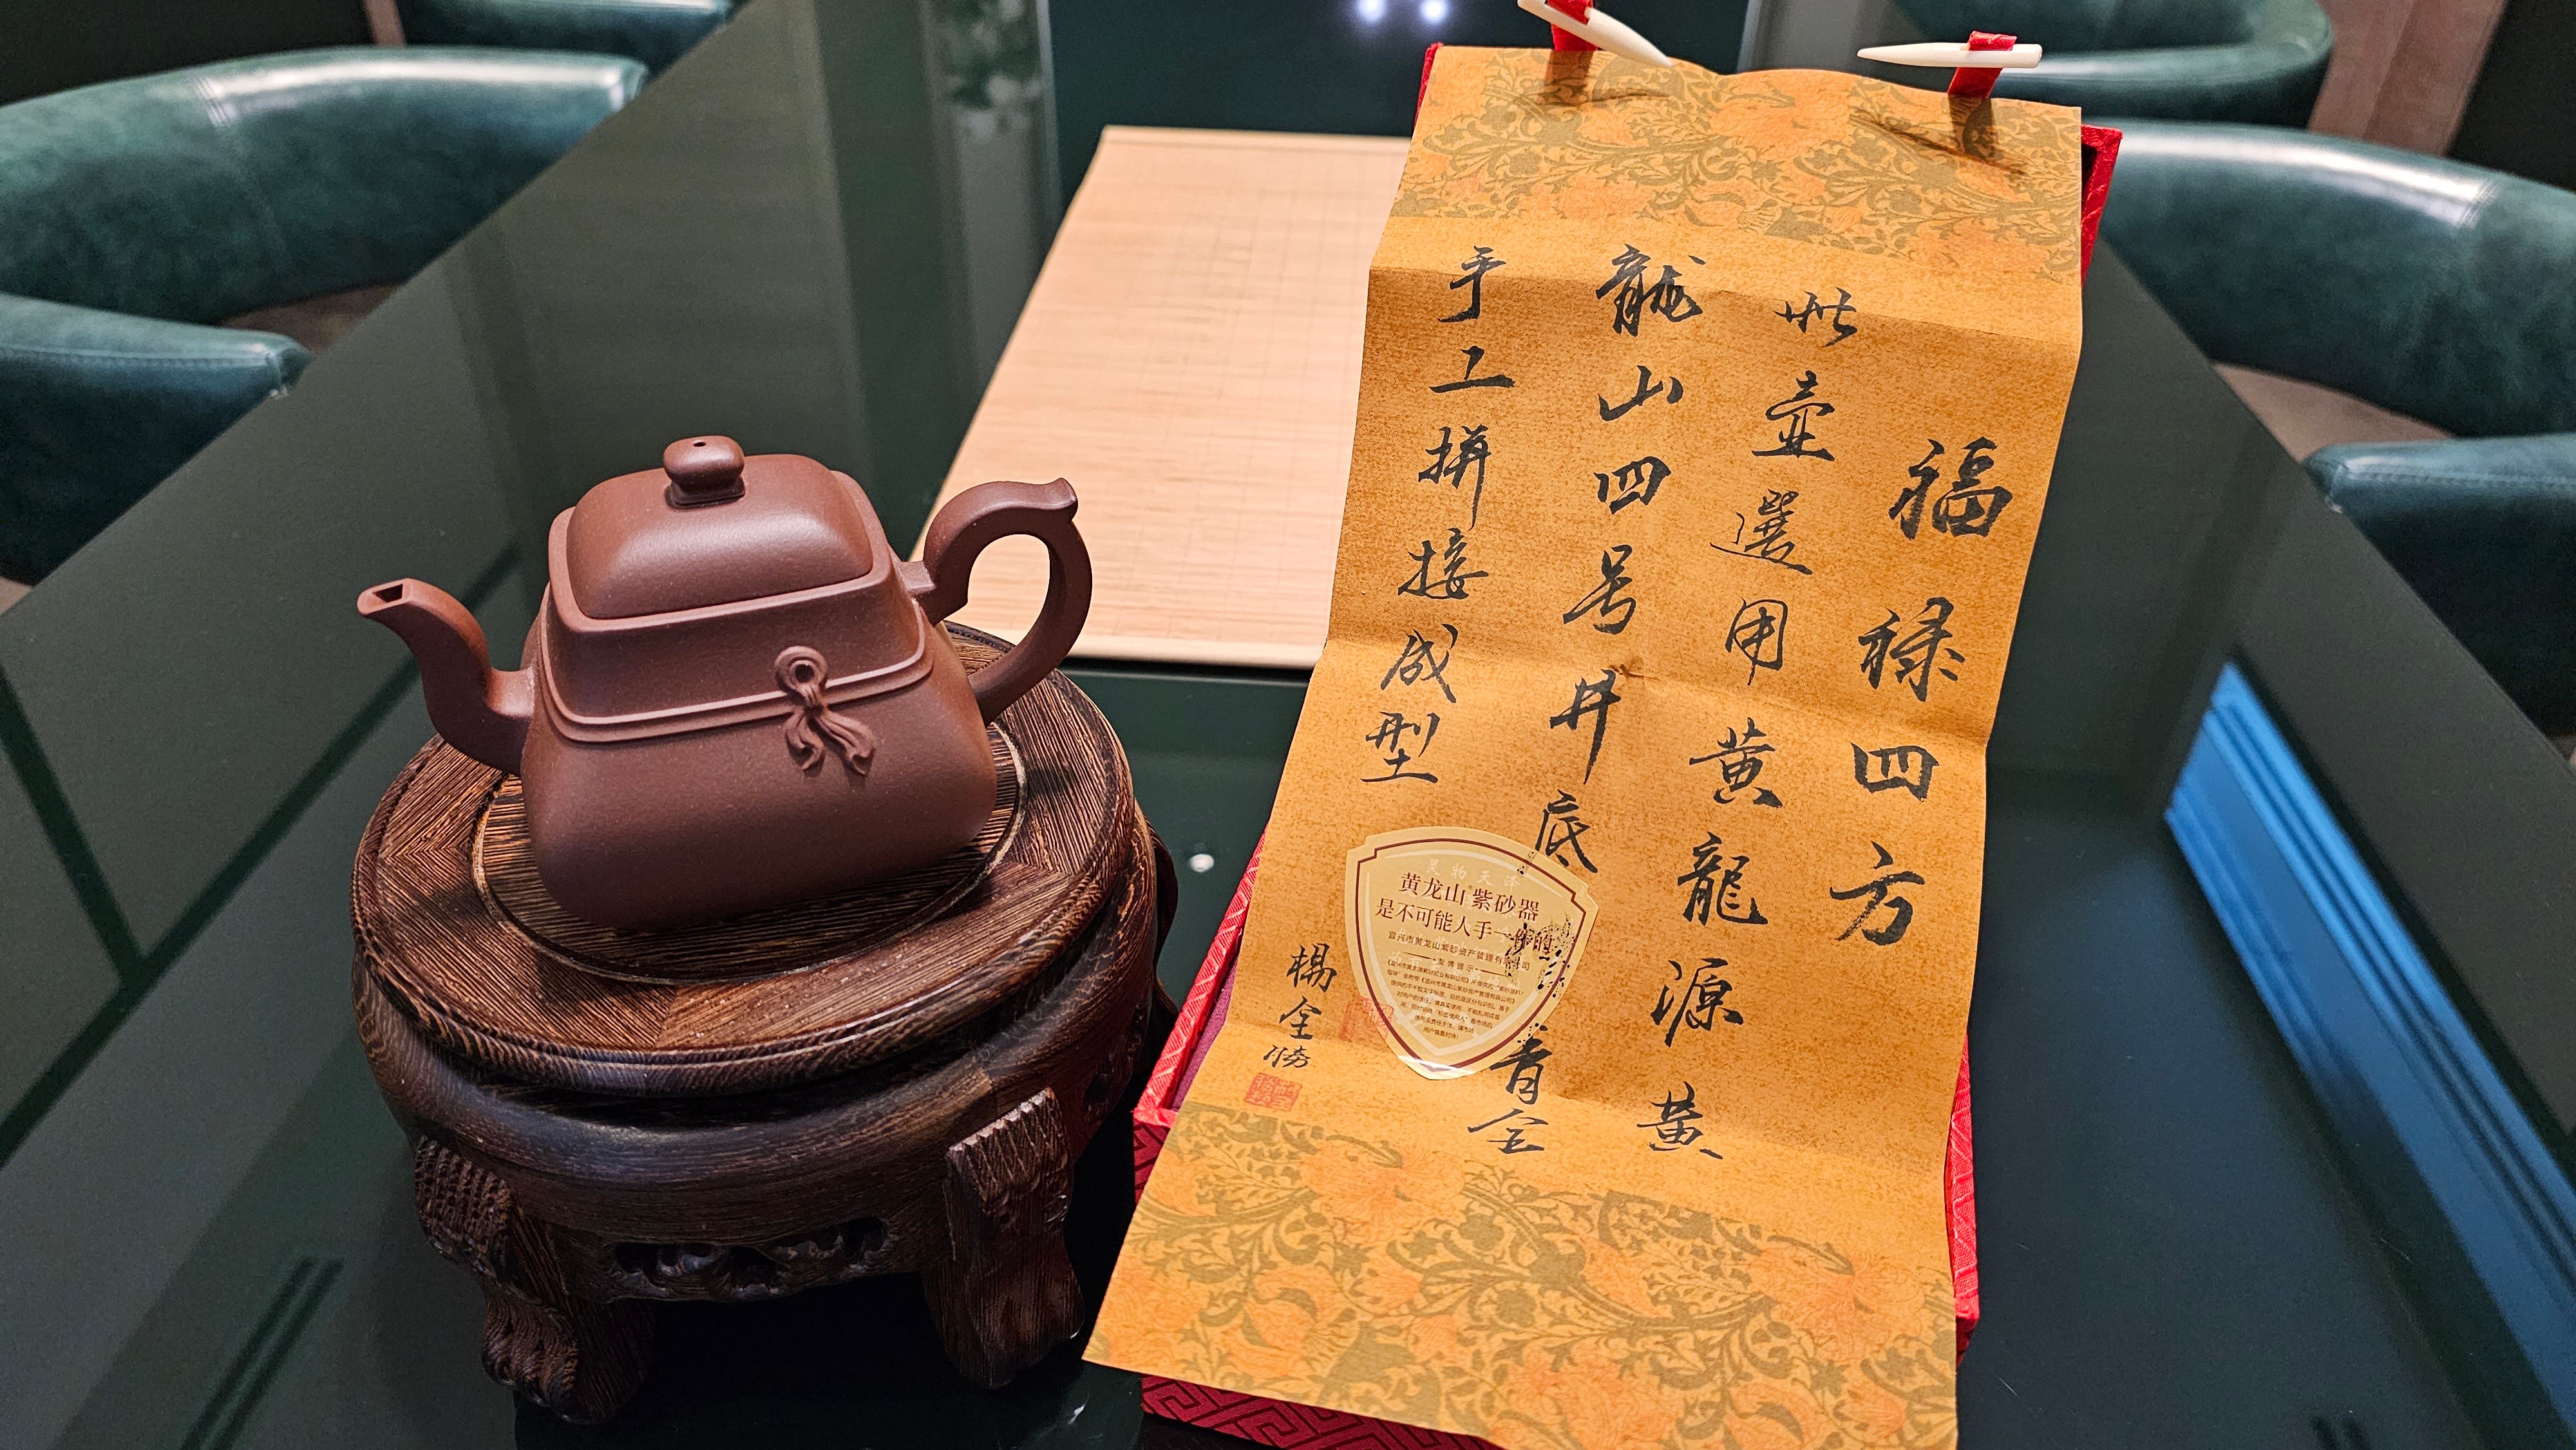 福禄四方
此壶選用黄龍源黄
龍山四号井底
青全
手工拼接成型
楊全勝
灵物天泽
黄龙山紫砂器
是不可能人手一件的
宜兴市黄龙山紫砂资产管理有限公司
友情提示